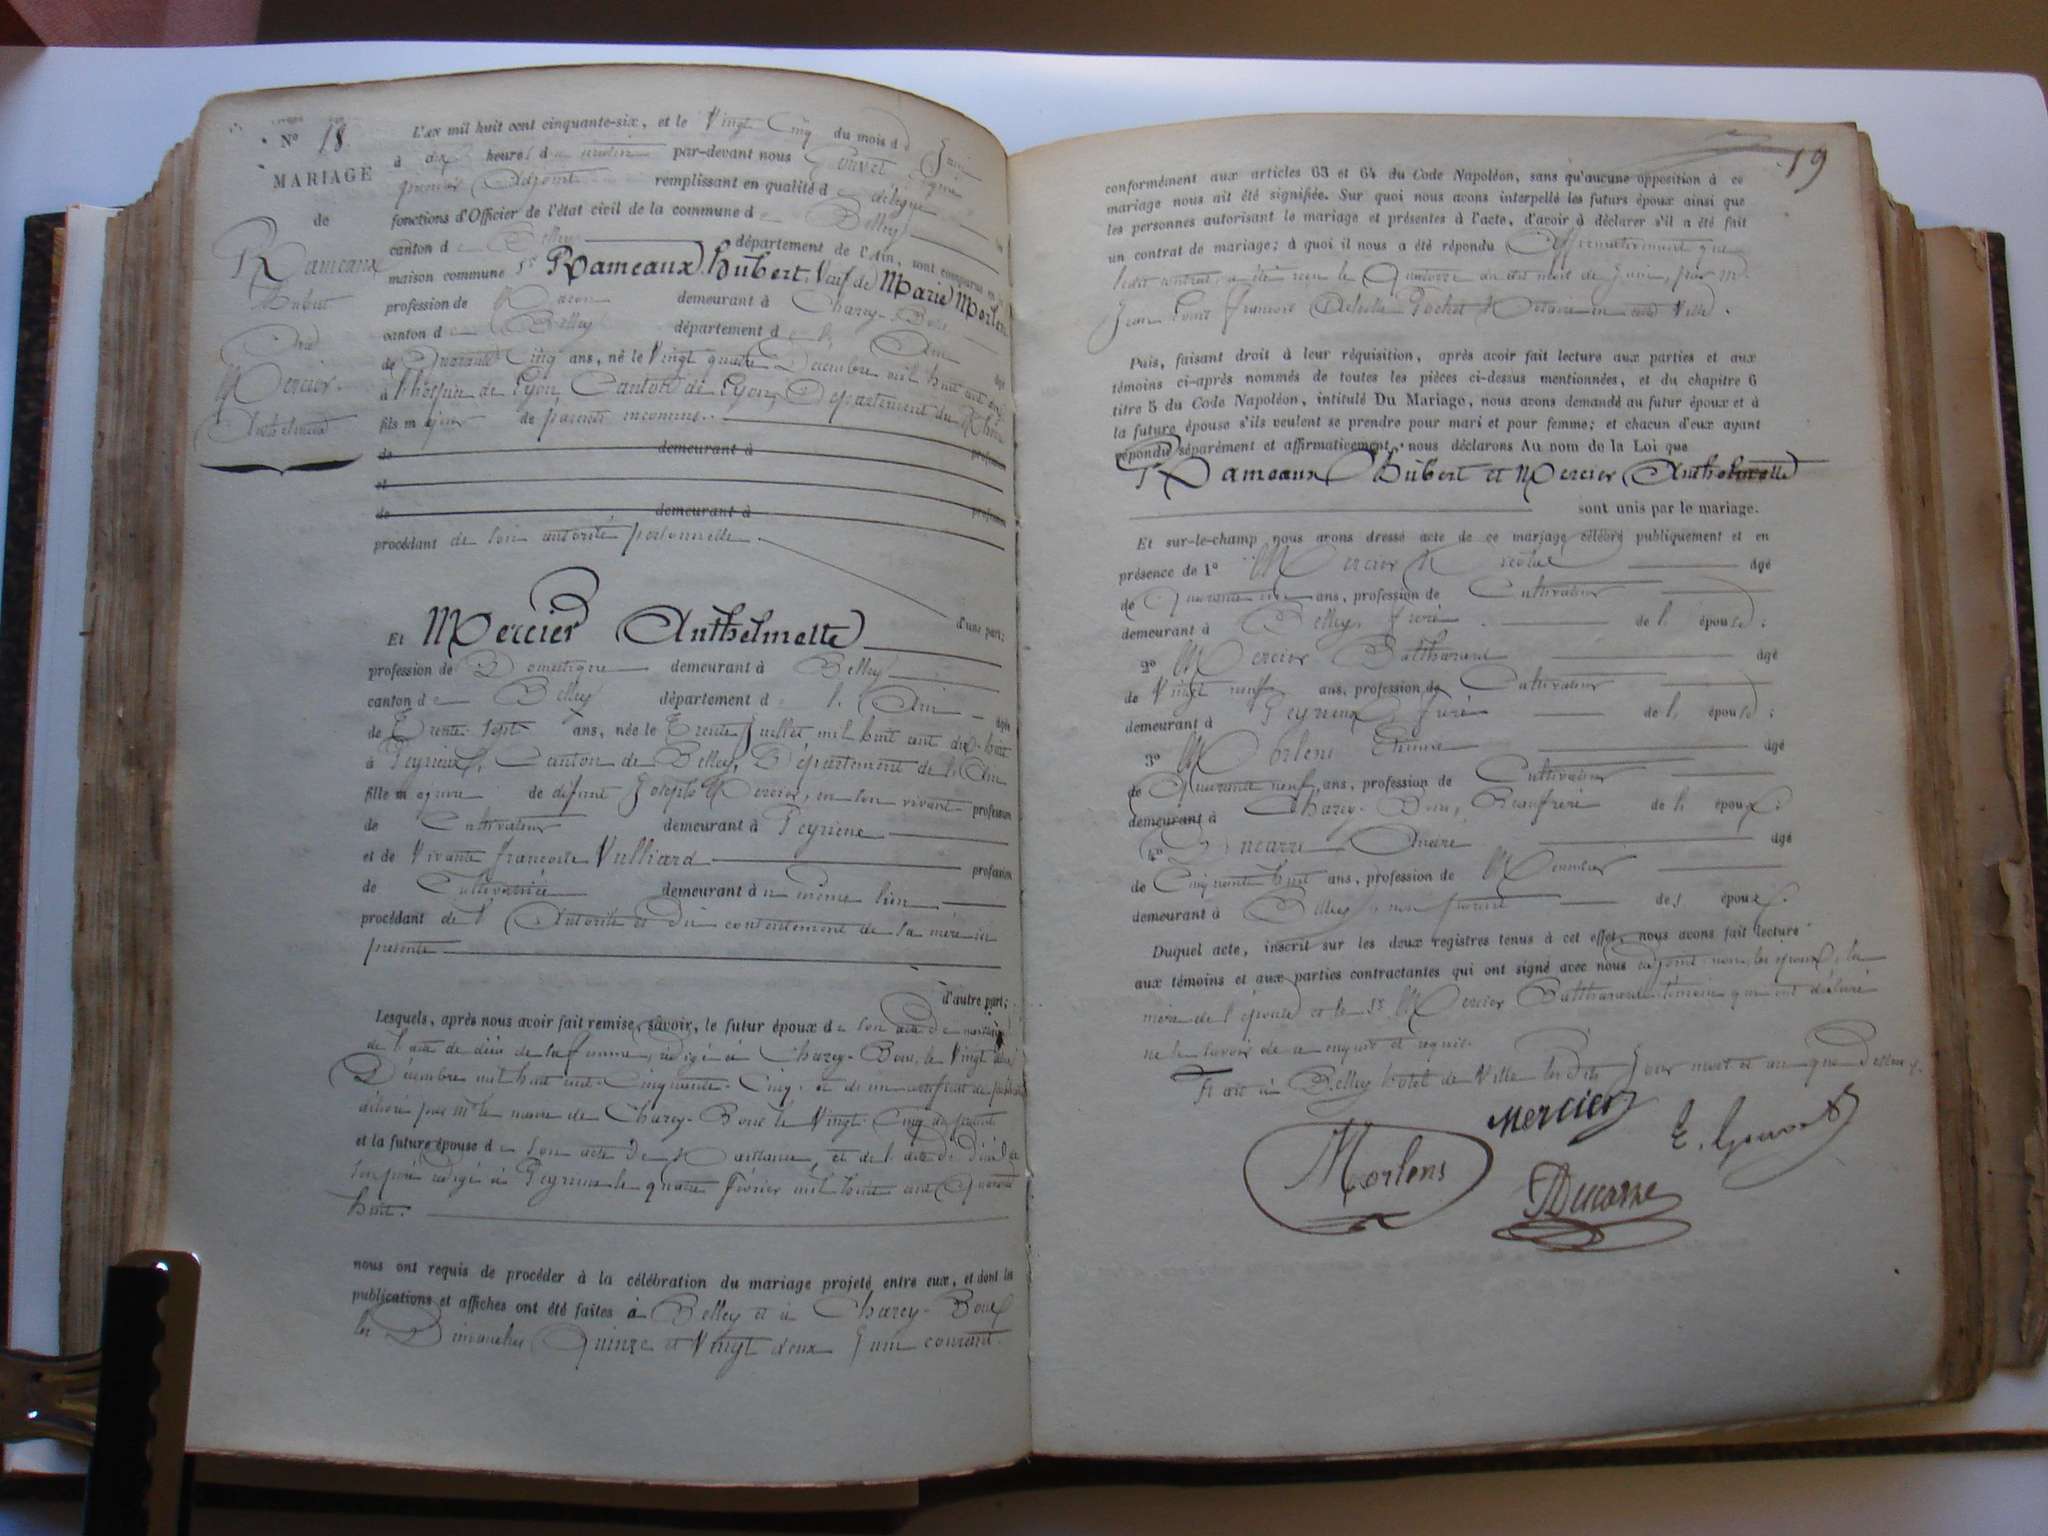 N° 18
MARIAGE
de
Rameaux
Hubert
Et
Mercier
Anthelmette
L'an mil huit cent cinquante-six, et le Vingt Cinq du mois de Juin
à dix heures du matin par-devant nous Gouvet
premier Adjoint remplissant en qualité de délégué les
fonctions d'Officier de l'état civil de la commune de Belley
canton de Belley département de l'Ain, sont comparus en la
maison commune Sr Rameaux Hubert, Veuf de Marie Morlens
profession de Maçon demeurant à Charey-Boux
canton de Belley département de l' Ain âgé
de Quarante Cinq ans, né le Vingt quatre Décembre mil huit cent dix
à l'hospice de Lyon, Canton de Lyon, Département du Rhône
fils majeur de parents inconnus.
de demeurant à profession
et
de demeurant à profession
procédant de son autorité personnelle
d'une part;
Et Mercier Anthelmette
profession de Domestique demeurant à Belley
canton de Belley département de l' Ain âgée
de Trente-Sept ans, née le Trente Juillet mil huit cent dix-huit
à Peyrieux, Canton de Belley, Département de l'Ain
fille majeure de défunt Joseph Mercier, en son vivant profession
de Cultivateur demeurant à Peyrieux
et de Vivante françoise Vulliard profession
de Cultivatrice demeurant au même lieu
procédant de l' Autorité et du consentement de sa mère ici
présente
d'autre part;
Lesquels, après nous avoir fait remise, savoir, le futur époux de son acte de naissance
de l'acte de décès de sa femme, rédigé à Charey-Boux, le Vingt
Décembre mil huit cent Cinquante-Cinq, et de un certificat de publication
délivré par Mr le maire de Charey-Boux le Vingt-Cinq du présent
et la future épouse de son acte de Naissance, et de l'acte de décès de
son père rédigé à Peyrieux le quatre février mil huit cent Quarante
huit.
nous ont requis de procéder à la célébration du mariage projeté entre eux, et dont les
publications et affiches ont été faites à Belley et à Charey-Boux
les Dimanches Quinze et Vingt deux Juin courant.
19
conformément aux articles 63 et 64 du Code Napoléon, sans qu'aucune opposition à ce
mariage nous ait été signifiée. Sur quoi nous avons interpellé les futurs époux ainsi que
les personnes autorisant le mariage et présentes à l'acte, d'avoir à déclarer s'il a été fait
un contrat de mariage; à quoi il nous a été répondu Affirmativement que
ledit contrat a été reçu le Quatorze du dit mois de Juin, par M.
Jean Louis françois Pochet Notaire en cette Ville.
Puis, faisant droit à leur réquisition, après avoir fait lecture aux parties et aux
témoins ci-après nommés de toutes les pièces ci-dessus mentionnées, et du chapitre 6
titre 5 du Code Napoléon, intitulé Du Mariage, nous avons demandé au futur époux et à
la future épouse s'ils veulent se prendre pour mari et pour femme; et chacun d'eux ayant
répondu séparément et affirmativement, nous déclarons Au nom de la Loi que
Sr Rameaux Hubert et Mercier Anthelmette
sont unis par le mariage.
Et sur-le-champ nous avons dressé acte de ce mariage célébré publiquement et en
présence de 1° Mercier Nicolas âgé
de Quarante ans, profession de Cultivateur
demeurant à Belley, frère de l' épouse;
2° Mercier Balthazard âgé
de Vingt neuf ans, profession de Cultivateur
demeurant à Peyrieux, frère de l' épouse;
3° Morlens Etienne âgé
de Quarante neuf ans, profession de Cultivateur
demeurant à Charey-Boux, Beaufrère de l' époux;
4° Ducarre André âgé
de Cinquante huit ans, profession de Menuisier
demeurant à Belley, non parent des époux.
Duquel acte, inscrit sur les deux registres tenus à cet effet, nous avons fait lecture
aux témoins et aux parties contractantes qui ont signé avec nous adjoint non les époux, la
mère de l'épouse et le Sr Mercier Balthazard témoin qui ont déclaré
ne le savoir de ce enquis et requis.
Fait à Belley hotel de Ville lesdits Jour mois et an que dessus.
Mercier
E. Gouvet
Morlens
Ducarre